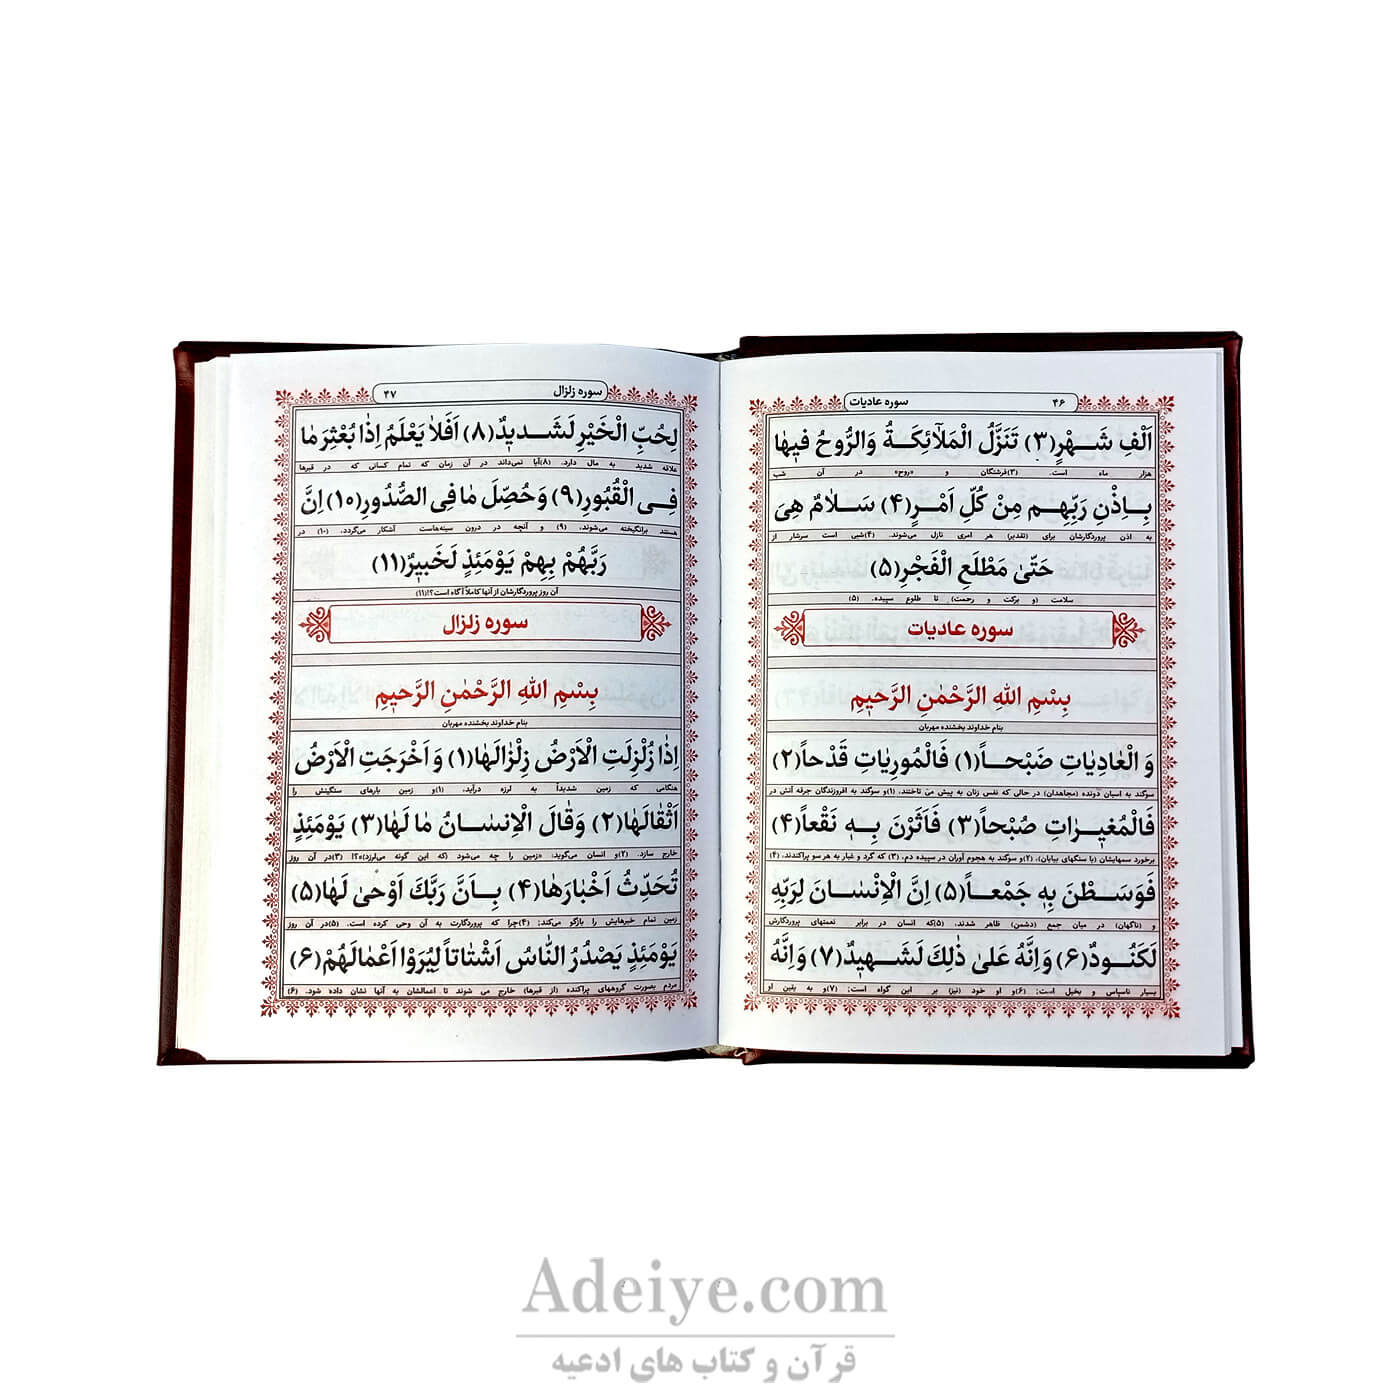 ۴۶ سوره عادیات
اَلْفِ شَهْرٍ(۳) تَنَزَّلُ الْمَلآئِكَةُ وَالرُّوحُ فيها
هزار ماه است. (۳)فرشتگان و «روح» در آن شب
بِاِذْنِ رَبِّهِم مِنْ كُلِّ اَمْرٍ(۴) سَلامٌ هِيَ
به اذن پروردگارشان برای (تقدیر) هر امری نازل می‌شوند. (۴)شبی است سرشار از
حَتّىٰ مَطْلَعِ الْفَجْرِ(۵)
سلامت (و برکت و رحمت) تا طلوع سپیده. (۵)
سوره عادیات
بِسْمِ اللهِ الرَّحْمٰنِ الرَّحيمِ
بنام خداوند بخشنده مهربان
وَ الْعادِياتِ ضَبْحاً(۱) فَالْمُورِياتِ قَدْحاً(۲)
سوگند به اسبان دونده (مجاهدان) در حالی که نفس زنان به پیش می تاختند، (۱)و سوگند به افروزندگان جرقه آتش در
فَالْمُغيراتِ صُبْحاً(۳) فَاَثَرْنَ بِهٖ نَقْعاً(۴)
برخورد سمهایشان (با سنگهای بیابان)، (۲)و سوگند به هجوم آوران در سپیده دم، (۳) که گرد و غبار به هر سو پراکندند، (۴)
فَوَسَطْنَ بِهٖ جَمْعاً(۵) اِنَّ الْاِنْسانَ لِرَبِّهٖ
و (ناگهان) در میان جمع (دشمن) ظاهر شدند، (۵)که انسان در برابر نعمتهای پروردگارش
لَكَنُودٌ(۶) وَاِنَّهُ عَلىٰ ذٰلِكَ لَشَهيدٌ(۷) وَاِنَّهُ
بسیار ناسپاس و بخیل است؛ (۶)و او خود (نیز) بر این گواه است؛ (۷)و به یقین او
سوره زلزال ۴۷
لِحُبِّ الْخَيْرِ لَشَديدٌ(۸) اَفَلا يَعْلَمُ اِذا بُعْثِرَ ما
علاقه شدید به مال دارد. (۸)آیا نمی‌داند در آن زمان که تمام کسانی که در قبرها
فِي الْقُبُورِ(۹) وَحُصِّلَ ما فِي الصُّدُورِ(۱۰) اِنَّ
هستند برانگیخته می‌شوند، (۹) و آنچه در درون سینه‌هاست آشکار می‌گردد، (۱۰) در
رَبَّهُمْ بِهِمْ يَوْمَئِذٍ لَخَبيرٌ(۱۱)
آن روز پروردگارشان از آنها کاملاً آگاه است؟!(۱۱)
سوره زلزال
بِسْمِ اللهِ الرَّحْمٰنِ الرَّحيمِ
بنام خداوند بخشنده مهربان
اِذا زُلْزِلَتِ الْاَرْضُ زِلْزالَها(۱) وَ اَخْرَجَتِ الْاَرْضُ
هنگامی که زمین شدیداً به لرزه درآید، (۱)و زمین بارهای سنگینش را
اَثْقالَها(۲) وَقالَ الْاِنْسانُ ما لَها(۳) يَوْمَئِذٍ
خارج سازد، (۲)و انسان می‌گوید: «زمین را چه می‌شود (که این گونه می‌لرزد)»؟! (۳)در آن روز
تُحَدِّثُ اَخْبارَها(۴) بِاَنَّ رَبَّكَ اَوْحىٰ لَها(۵)
زمین تمام خبرهایش را بازگو می‌کند؛ (۴)چرا که پروردگارت به آن وحی کرده است. (۵)در آن روز
يَوْمَئِذٍ يَصْدُرُ النّاسُ اَشْتاتاً لِيُرَوْا اَعْمالَهُمْ(۶)
مردم بصورت گروههای پراکنده (از قبرها) خارج می شوند تا اعمالشان به آنها نشان داده شود. (۶)
Adeiye.com
قرآن و کتاب های ادعیه